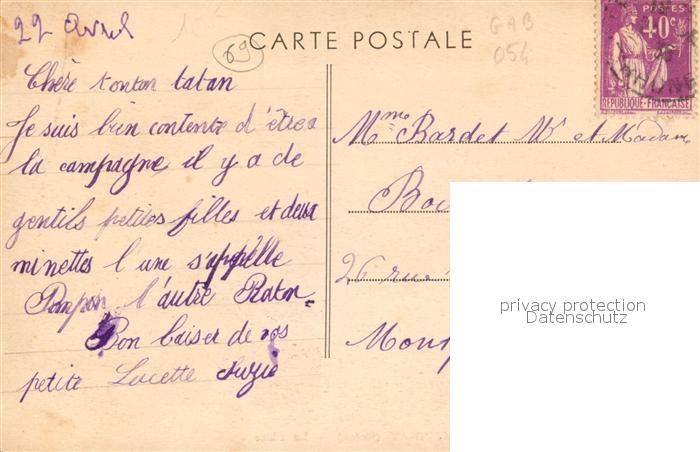 22 Avril
69
GAB
054
CARTE POSTALE
POSTES
40c
REPUBLIQUE-FRANÇAISE
Chère tonton tatan
Je suis bien contente d'être a
la campagne il y a de
gentils petites filles et deux
minettes l une s'appelle
Pompon l'autre Raton
Bon baiser de vos
petite Lucette Suzie
Mme Bardet Mr et Madame
26 rue
privacy protection
Datenschutz